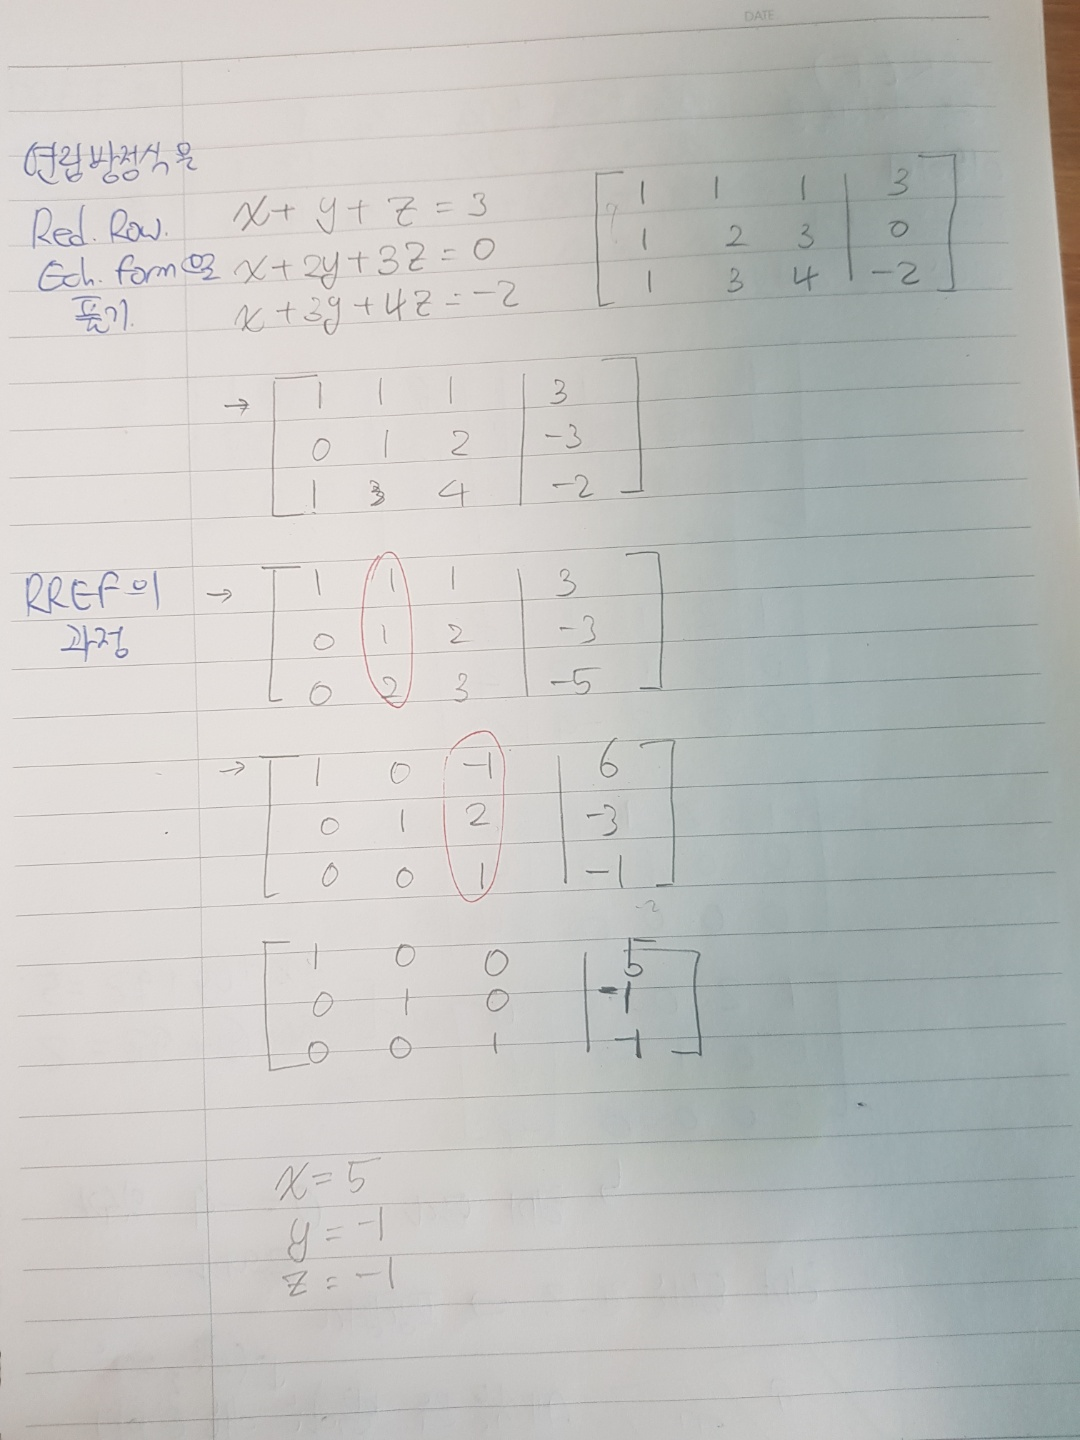 DATE
연립방정식을
Red. Row.
Ech. form으로
풀기.
x + y + z = 3
x + 2y + 3z = 0
x + 3y + 4z = -2
1 1 1 | 3
1 2 3 | 0
1 3 4 | -2
→ 1 1 1 | 3
0 1 2 | -3
1 3 4 | -2
RREF의
과정
→ 1 1 1 | 3
0 1 2 | -3
0 2 3 | -5
→ 1 0 -1 | 6
0 1 2 | -3
0 0 1 | -1
-2
1 0 0 | 5
0 1 0 | -1
0 0 1 | -1
x = 5
y = -1
z = -1